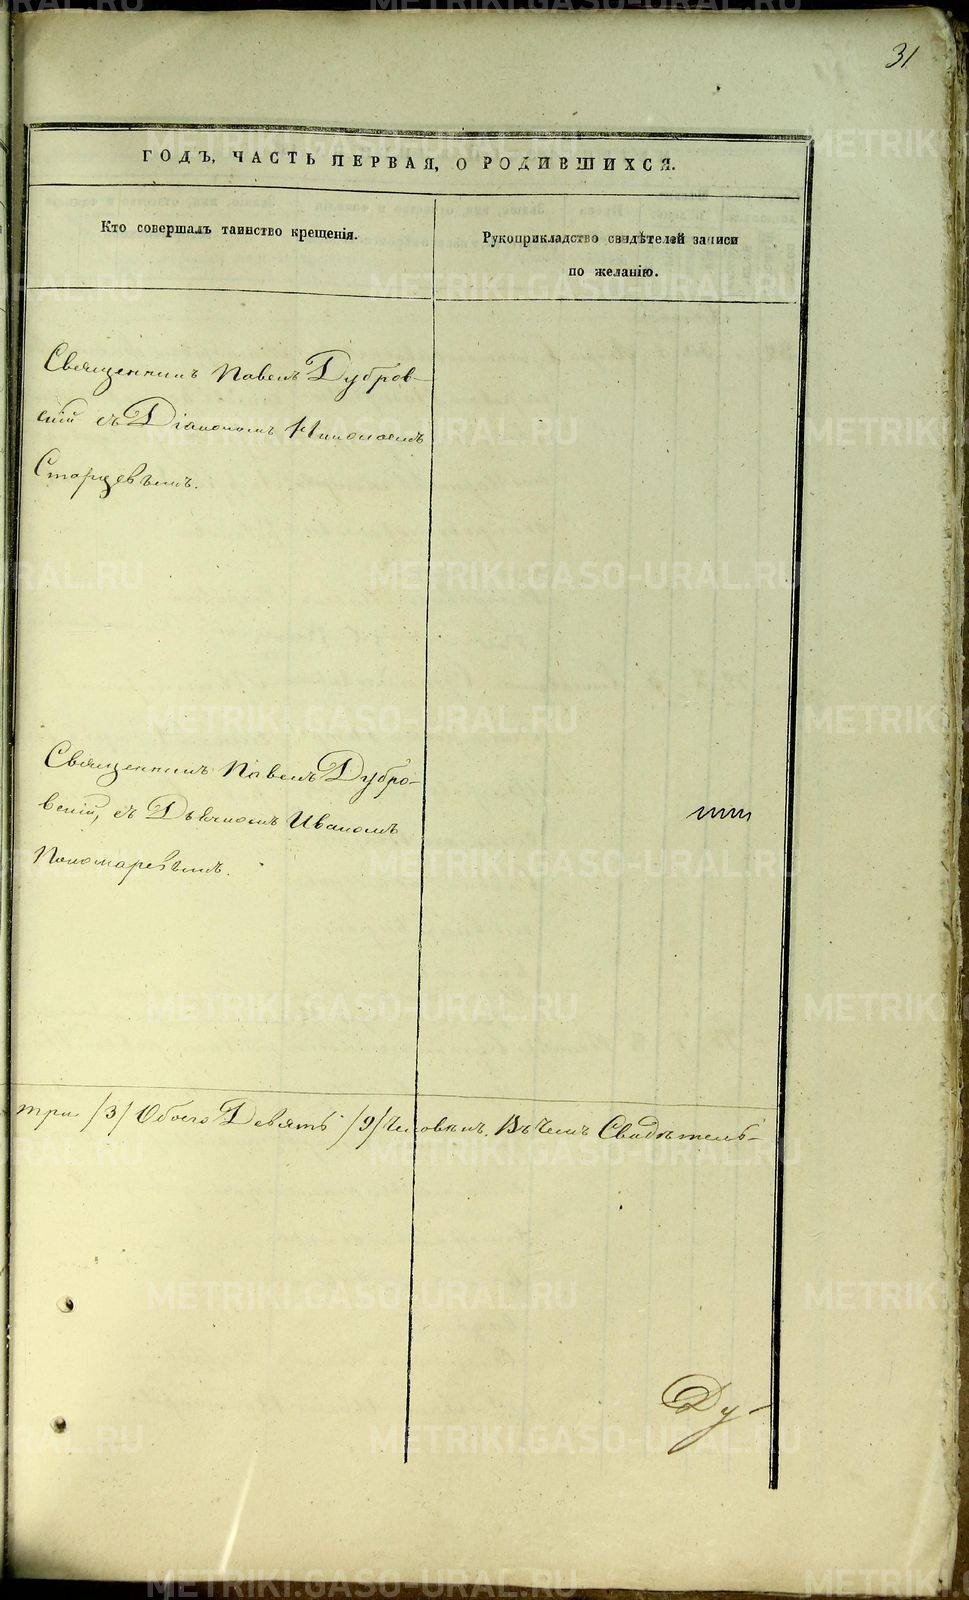 31
ГОДЪ, ЧАСТЬ ПЕРВАЯ, О РОДИВШИХСЯ.
Кто совершалъ таинство крещенія.
Рукоприкладство свидѣтелей записи
по желанію.
Священникъ Павелъ Дубров-
скій съ Діакономъ Николаемъ
Старцевымъ.
Священникъ Павелъ Дубро-
вскій, съ Дьячкомъ Иваномъ
Пономаревымъ.
три /3/ Обоего Девять /9/ Человѣкъ. Въ чемъ Свидѣтель-
Ду-
METRIKI.GASO-URAL.RU